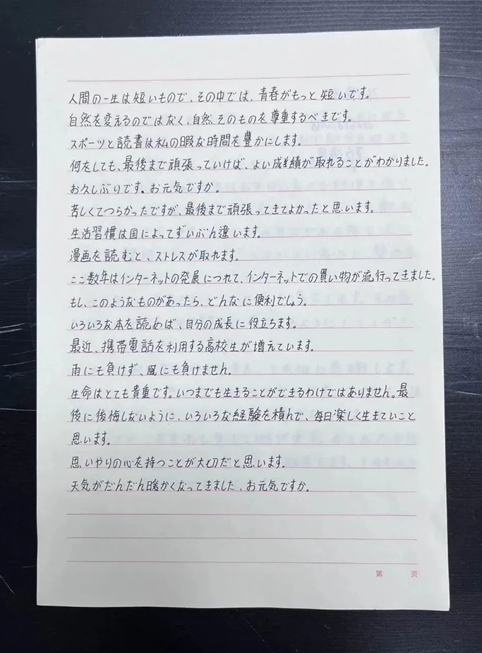 人間の一生は短いもので、その中では、青春がもっと短いです。
自然を変えるのではなく、自然そのものを尊重するべきです。
スポーツと読書は私の暇な時間を豊かにします。
何をしても、最後まで頑張っていけば、よい成績が取れることがわかりました。
お久しぶりです。お元気ですか。
苦しくてつらかったですが、最後まで頑張ってきてよかったと思います。
生活習慣は国によってずいぶん違います。
漫画を読むと、ストレスが取れます。
ここ数年はインターネットの発展につれて、インターネットでの買い物が流行ってきました。
もし、このようなものがあったら、どんなに便利でしょう。
いろいろな本を読めば、自分の成長に役立ちます。
最近、携帯電話を利用する高校生が増えています。
雨にも負けず、風にも負けません。
生命はとても貴重です。いつまでも生きることができるわけではありません。最
後に後悔しないように、いろいろな経験を積んで、毎日楽しく生きていこと
思います。
思いやりの心を持つことが大切だと思います。
天気がだんだん暖かくなってきました、お元気ですか。
第 页